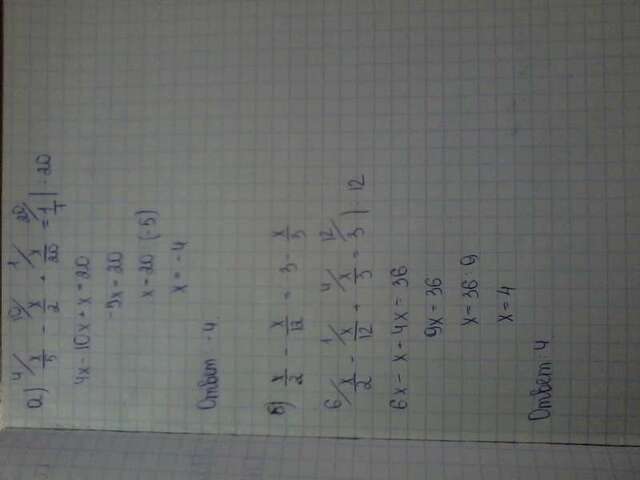 а) ⁴/ x/5 - ¹⁰/ x/2 + ¹/ x/20 = ²⁰/ 1/1 | · 20
4x - 10x + x = 20
-5x = 20
x = 20 (-5)
x = -4
Ответ -4
б) x/2 - x/12 = 3 - x/3
⁶/ x/2 - ¹/ x/12 + ⁴/ x/3 = ¹²/ 3 | · 12
6x - x - 4x = 36
9x = 36
x = 36 : 9
x = 4
Ответ: 4